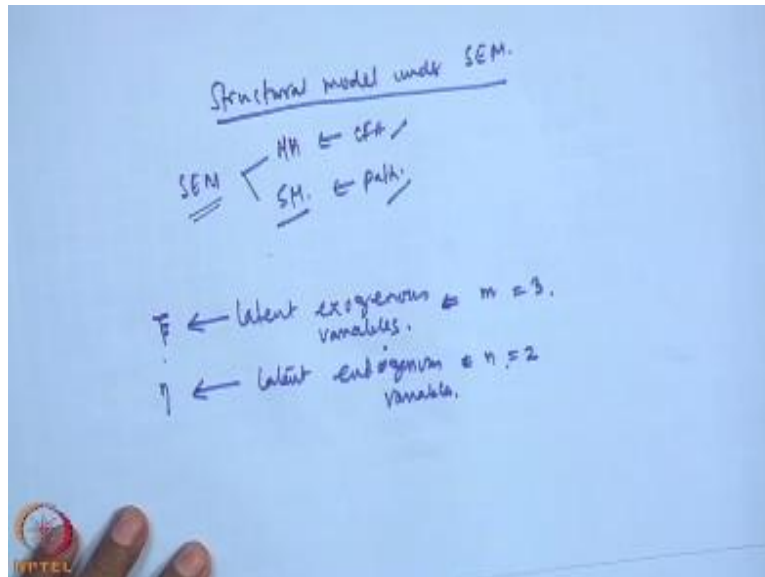 Structural model under SEM.
MM ← CFA
SEM
SM. ← Path.
ξ ← latent exogenous ← m = 3.
variables.
η ← latent endogenous ← n = 2
variables.
NPTEL